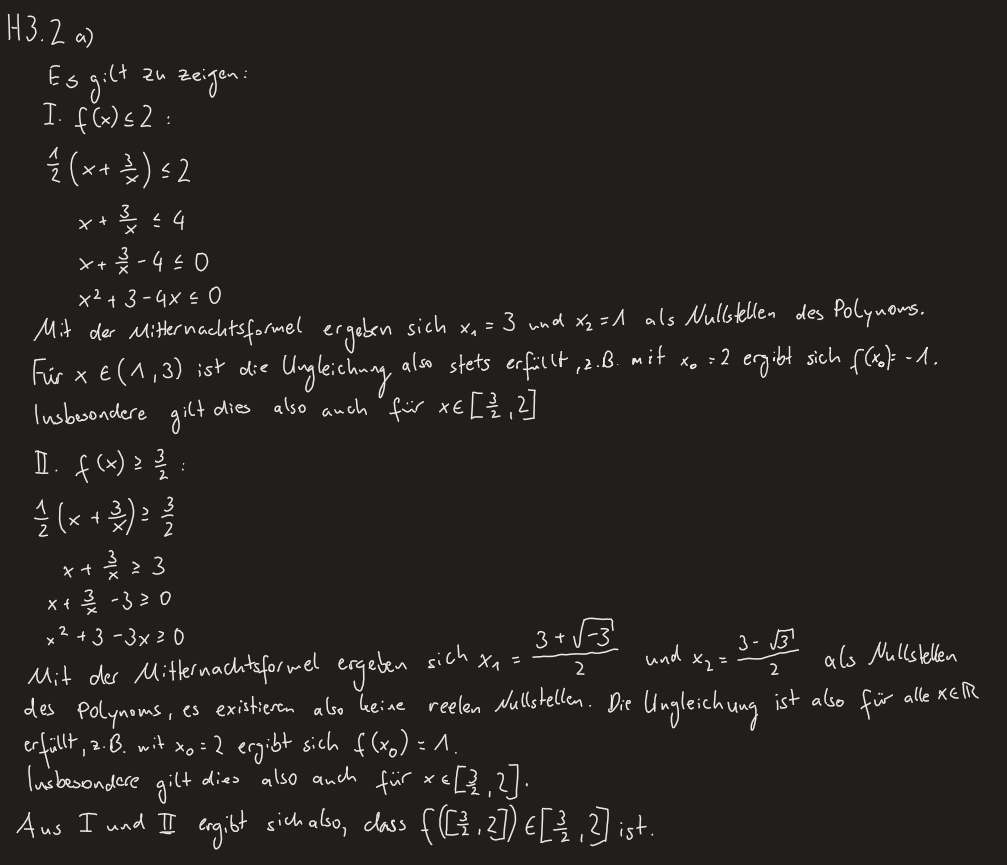 H3.2 a)
Es gilt zu zeigen:
I. f(x) ≤ 2 :
1/2 (x + 3/x) ≤ 2
x + 3/x ≤ 4
x + 3/x - 4 ≤ 0
x² + 3 - 4x ≤ 0
Mit der Mitternachtsformel ergeben sich x₁ = 3 und x₂ = 1 als Nullstellen des Polynoms.
Für x ∈ (1,3) ist die Ungleichung also stets erfüllt, z.B. mit x₀ = 2 ergibt sich f(x₀) = -1.
Insbesondere gilt dies also auch für x ∈ [3/2, 2]
II. f(x) ≥ 3/2 :
1/2 (x + 3/x) ≥ 3/2
x + 3/x ≥ 3
x + 3/x - 3 ≥ 0
x² + 3 - 3x ≥ 0
Mit der Mitternachtsformel ergeben sich x₁ = (3 + √-3)/2 und x₂ = (3 - √3)/2 als Nullstellen
des Polynoms, es existieren also keine reelen Nullstellen. Die Ungleichung ist also für alle x ∈ ℝ
erfüllt, z.B. mit x₀ = 2 ergibt sich f(x₀) = 1.
Insbesondere gilt dies also auch für x ∈ [3/2, 2].
Aus I und II ergibt sich also, dass f([3/2, 2]) ∈ [3/2, 2] ist.